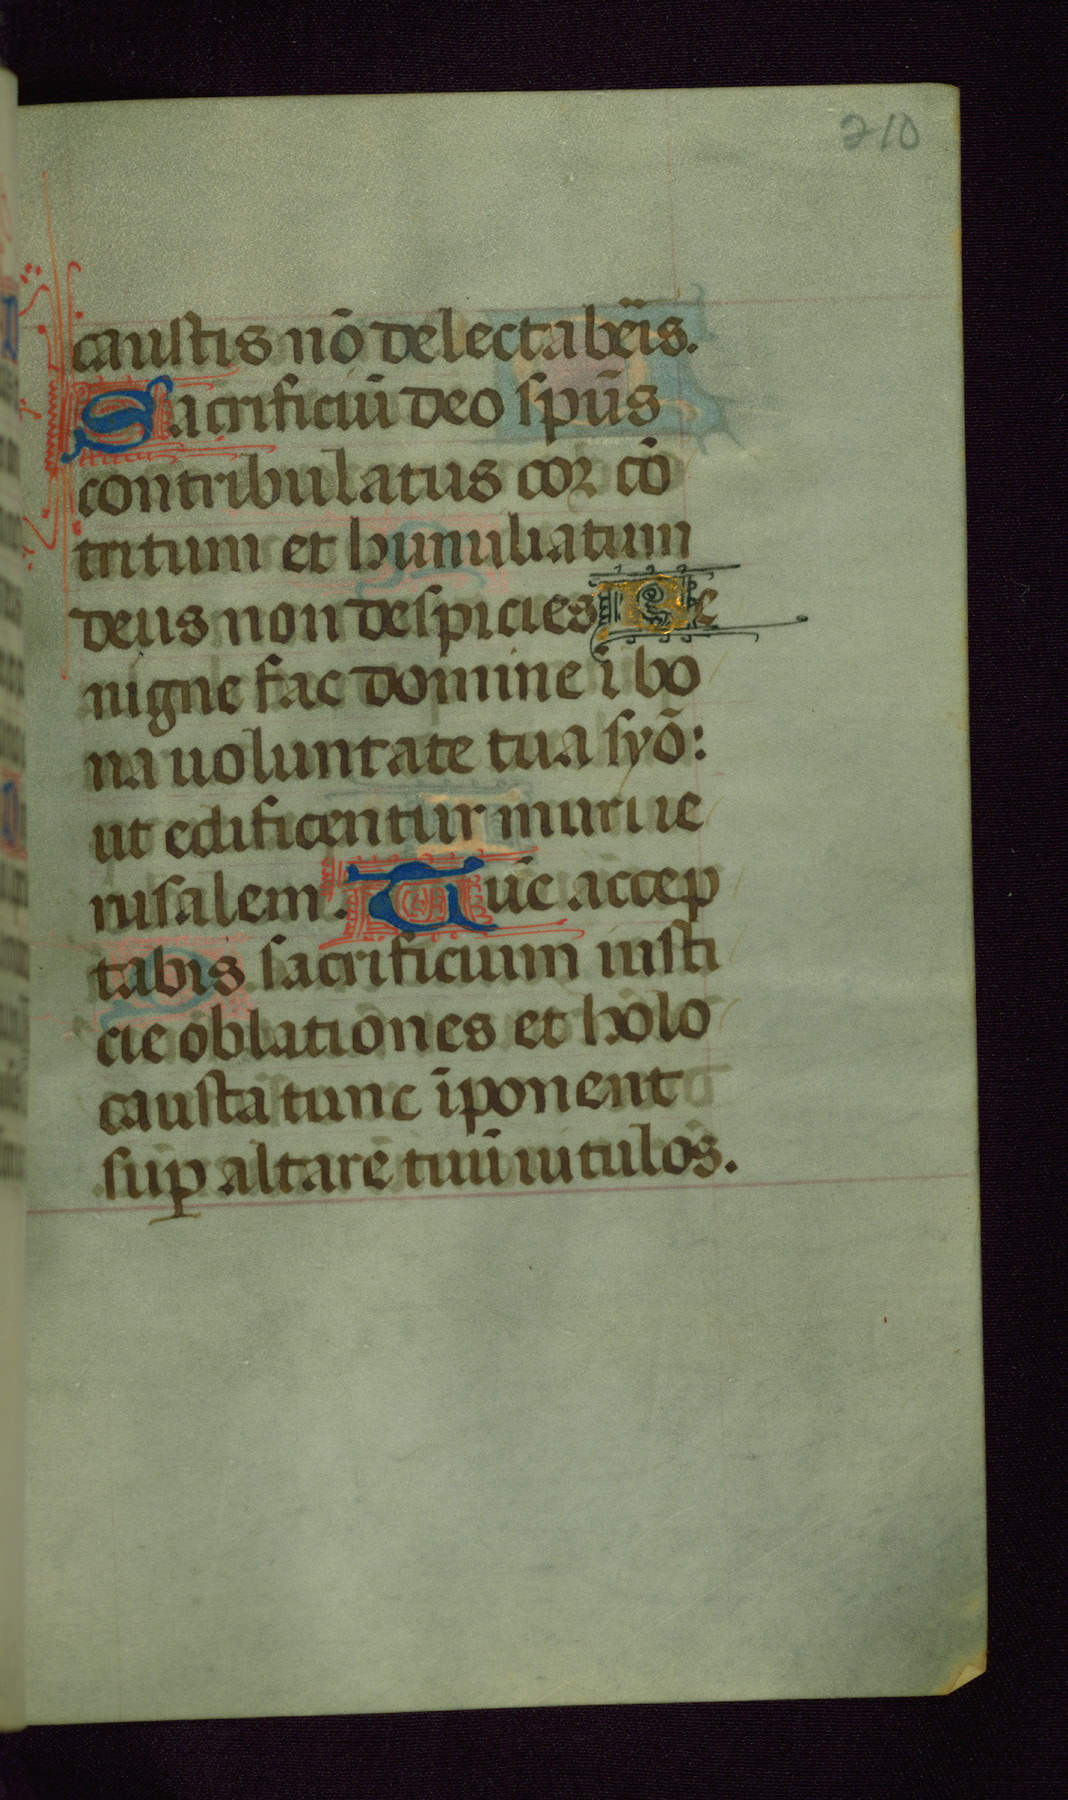 210
caustis nō delectabeīs.
Sacrificiū deo spūs
contribulatus cor cō
tritum et humiliatum
deus non despicies Be
nigne fac domine ī bo
na uoluntate tua syō:
ut edificentur muri ie
rusalem. Tūc accep
tabis sacrificium iusti
cie oblationes et holo
causta tunc īponent
sup altare tuū uitulos.